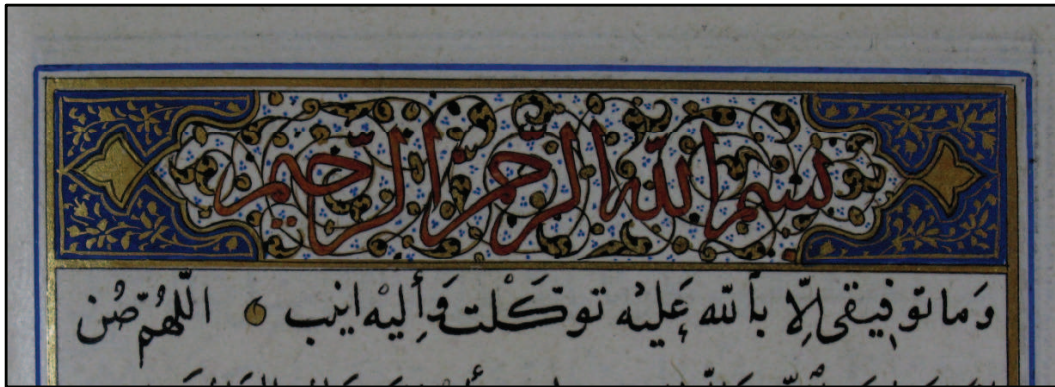 بسم الله الرحمن الرحيم
وَما توفِيقى إلّا بالله عَليْه توكَلْت وَأليْه انيب اللّهُمّ صُن